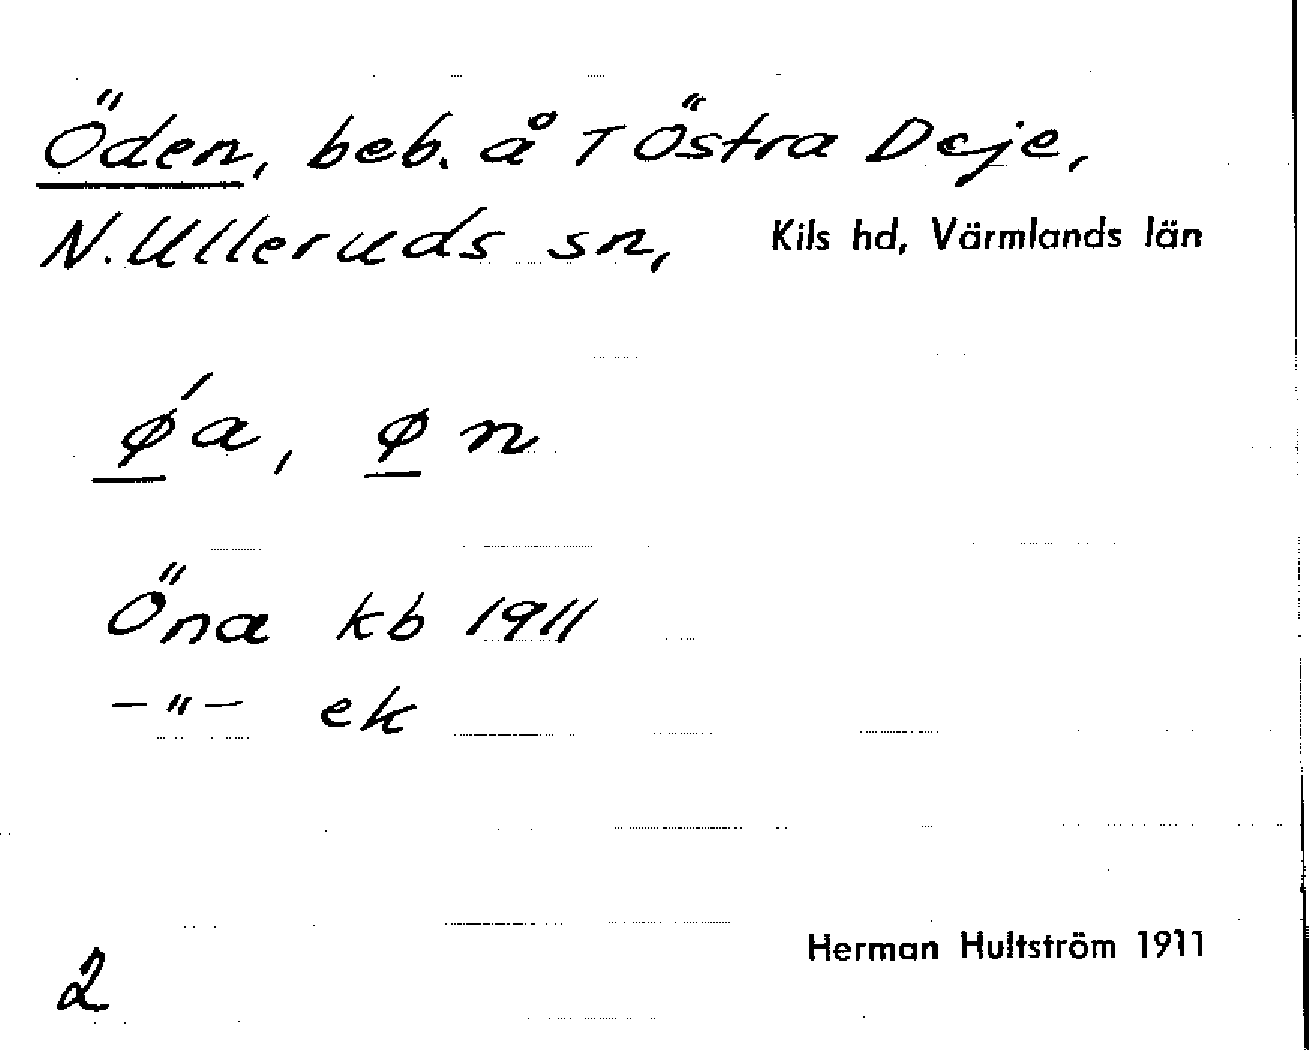 Öden, beb. å T Östra Deje,
N. Ulleruds sn, Kils hd, Värmlands län
ǿa, ø n
Öna kb 1911
—"— ek
Herman Hultström 1911
2